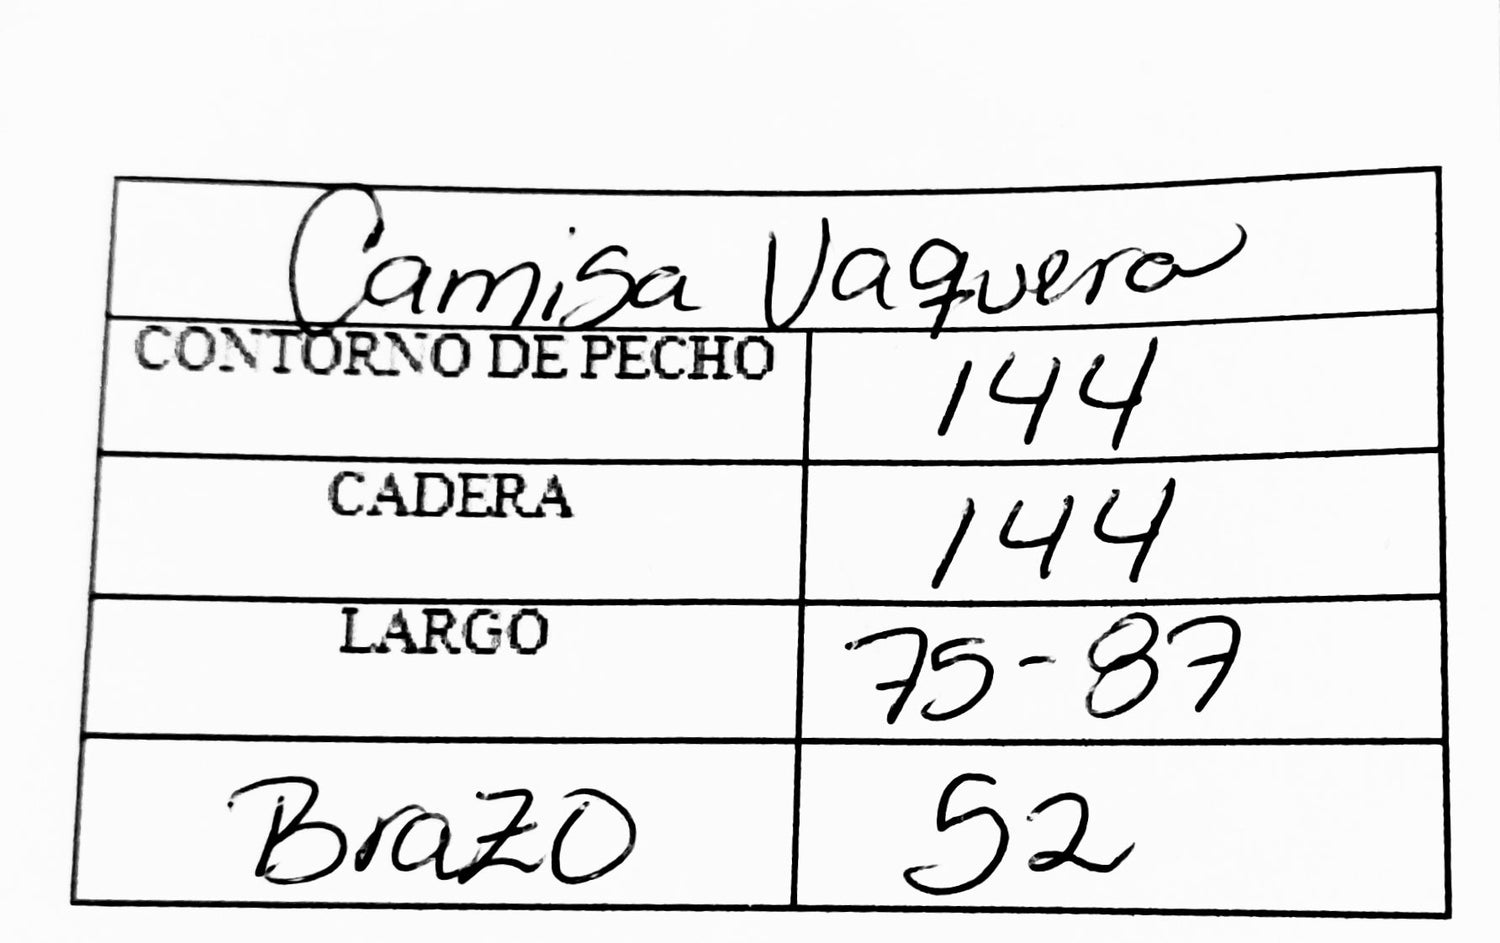 Camisa Vaquera
CONTORNO DE PECHO 144
CADERA 144
LARGO 75-87
Brazo 52